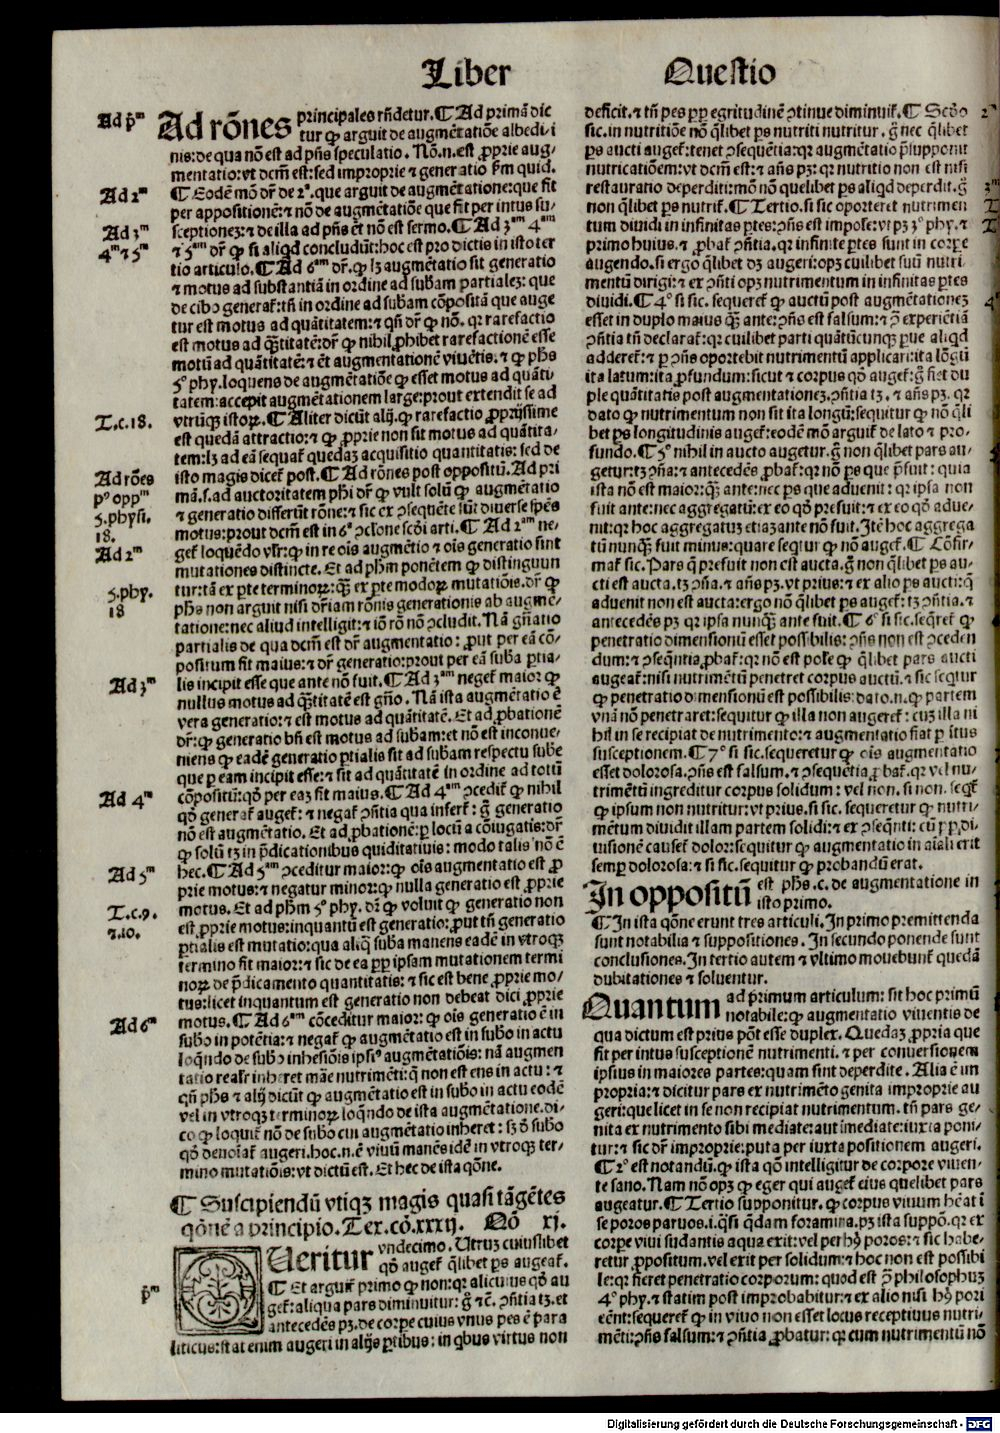 Liber Questio
Ad rōnes principales rn̄detur. ¶ Ad primā dic
tur ꝙ arguit de augmētatiōe albedi/i
nis: de qua nō est ad pn̄s speculatio. Nō.n.est ꝓprie aug-
mentatio: vt dcm̄ est: sed improprie ⁊ generatio
¶ Eodē mō dr̄ de 2º. que arguit de augmētatione: que fit
per appositionē: ⁊ nō de augmētatiōe que fit per intus su-
sceptionez: ⁊ de illa ad pn̄s ēt nō est sermo. ¶ Ad 3ᵐ 4ᵐ
⁊ 5ᵐ dr̄ ꝙ si aliqd concludūt: hoc est pro dictis in isto ter
tio articulo. ¶ Ad 6ᵐ dr̄. ꝙ lꝫ augmētatio sit generatio
⁊ motus ad substantiā in ordine ad subam partialez: que
de cibo generat̄: tn̄ in ordine ad subam cōpositā que auge
tur est motus ad quātitatem: ⁊ qn̄ dr̄ ꝙ nō. qr rarefactio
est motus ad quātitatē: dr̄ ꝙ nihil ꝓhibet rarefactionē esse
motū ad quātitatē: ⁊ ēt augmentationē viuētis. ⁊ ꝙ phs
5º phy. loquens de augmētatiōe ꝙ esset motus ad quāti
tatem: accepit augmētationem large: prout extendit se ad
vtrūqꝫ istoꝝ. ¶ Aliter dicūt alij. ꝙ rarefactio ꝓprijssime
est quedā attractio: ⁊ ꝙ ꝓprie non sit motus ad quātita-
tem: lꝫ ad eā sequat̄ quedaz acquisitio quantitatis: sed de
isto magis dicet̄ post. ¶ Ad rōnes post oppositū. Ad pri
mā.s.ad auctoritatem phi dr̄ ꝙ vult solū ꝙ augmētatio
⁊ generatio differūt rōne: ⁊ sic ex ꝯsequēte sūt diuerse spēs
motus: prout dcm̄ est in 6º ꝯclone scd̄i arti. ¶ Ad 2ᵐ ne-
get̄ loquēdo vlr̄: ꝙ in re ois augmētio ⁊ ois generatio sint
mutationes distincte. Et ad phm ponētem ꝙ distinguun
tur: tā ex parte terminoꝝ: qꝫ ex parte modoꝝ mutatiōis. dr̄ ꝙ
phs non arguit nisi dr̄iam rōnis generationis ab augmē-
tatione: nec aliud intelligit: ⁊ iō rō nō ꝯcludit. Nā gn̄atio
partialis de qua dcm̄ est dr̄ augmentatio: prout per eā cō-
positum fit maius: ⁊ dr̄ generatio: prout per eā suba partia-
lis incipit esse que ante nō fuit. ¶ Ad 3ᵐ neget̄ maior ꝙ
nullus motus ad quātitatē est gn̄o. Nā ista augmētatio ē
vera generatio: ⁊ est motus ad quātitatē. Et ad ꝓbationē
dr̄: ꝙ generatio bn̄ est motus ad subam: et nō est inconue-
niens ꝙ eadē generatio partialis sit ad subam respectu sube
que per eam incipit esse: ⁊ sit ad quātitatē in ordine ad totū
cōpositū: qd̄ per eaz fit maius. ¶ Ad 4ᵐ ꝯcedit̄ ꝙ nihil
qd̄ generat̄ auget̄: ⁊ negat̄ ꝯn̄tia qua infert̄: g̊ generatio
nō est augmētatio. Et ad ꝓbationē: per locū a cōiugatis: dr̄
ꝙ solū tꝫ in p̄dicationibus quiditatiuis: modo talis nō ē
hec. ¶ Ad 5ᵐ ꝯceditur maior: ꝙ ois augmentatio est ꝓ
prie motus: ⁊ negatur minor: ꝙ nulla generatio est ꝓprie
motus. Et ad phm 5º phy. dm̄ ꝙ voluit ꝙ generatio non
est ꝓprie motus: inquantū est generatio: prout tn̄ generatio
partialis est mutatio: qua aliq̄ suba manens eadē in vtroqꝫ
termino fit maior: ⁊ sic de ea pp ipsam mutationem termi
noꝝ de p̄dicamento quantitatis: ⁊ sic est bene ꝓprie mo-
tus: licet inquantum est generatio non debeat dici ꝓprie
motus. ¶ Ad 6ᵐ cōceditur maior: ꝙ ois generatio ē in
subo in potētia: ⁊ negat̄ ꝙ augmētatio est in subo in actu
loqn̄do de subo inhesiōis ipsiꝰ augmētatiōis: nā augmen
tatio realr̄ inheret māe nutrimēti: q̄ non est ens in actu: ⁊
qn̄ phs ⁊ alij dicūt ꝙ augmētatio est in subo in actu eodē
vel in vtroqꝫ terminoꝝ loqn̄do de ista augmētatione. di-
co ꝙ loquit̄ nō de subo cui augmētatio inheret: sꝫ d̄ subo
qd̄ denoiat̄ augeri. hoc.n.ē viuū manēs idē in vtroqꝫ ter-
mino mutatiōis: vt dictū est. Et hec de ista qōne.
¶ Suscipiendū vtiqꝫ magis quasi tāgētes
qōnē a principio. Tex. cō. xxxij. Qō xj.
Queritur vndecimo. Utrum cuiuslibet
qd̄ auget̄ q̄libet ps augeat̄.
¶ Et arguit̄ primo ꝙ non: qr alicuius qd̄ au
get̄: aliqua pars diminuitur: g̊ ⁊c̄. ꝯn̄tia tꝫ. et
antecedēs pꝫ. de corpe cuius vnus pes ē para
liticus: stat enim augeri in alijs partibus: in qbus virtus non
Ad p̄ᵐ
Ad 2ᵐ
Ad 3ᵐ
4ᵐ ⁊ 5ᵐ
T.c.18.
Ad rōes
pº oppᵐ
5.physi.
18.
Ad 2ᵐ
5.phy.
18
Ad 3ᵐ
Ad 4ᵐ
Ad 5ᵐ
T.c.9.
⁊.10.
Ad 6ᵐ
p̄ᵐ
deficit. ⁊ tn̄ pes pp egritudinē ꝯtinue diminuit̄. ¶ Scd̄o
sic. in nutritiōe nō q̄libet ps nutriti nutritur. g̊ nec q̄libet
ps aucti auget̄: tenet ꝯsequētia: qr augmētatio p̄supponit
nutricatiōem: vt dcm̄ est: ⁊ an̄s pꝫ: qr nutritio non est nisi
restauratio deperditi: mō nō quelibet ps aliqd deperdit. g̊
non q̄libet ps nutrit̄. ¶ Tertio. si sic oporteret nutrimen
tum diuidi in infinitas partes: ꝯn̄s est impole: vt pꝫ 3º phy. ⁊
primo huius. ⁊ ꝓbat̄ ꝯn̄tia. qr infinite partes sunt in corpe
augendo. si ergo q̄libet dꝫ augeri: opꝫ cuilibet suū nutri
mentū dirigi: ⁊ ex ꝯn̄ti opꝫ nutrimentum in infinitas partes
diuidi. ¶ 4º si sic. sequeret̄ ꝙ auctū post augmētationez
esset in duplo maius qꝫ ante: ꝯn̄s est falsum: ⁊ ꝯ̄ experiētiā
ꝯn̄tia tn̄ declarat̄: qr cuilibet parti quātūcunqꝫ parue aliqd
adderet̄: ⁊ per ꝯn̄s oportebit nutrimentū applicari: ita lōgū
ita latum: ita ꝓfundum: sicut ⁊ corpus qd̄ auget̄: g̊ fiet du
ple quātitatis post augmentationez. ꝯn̄tia tꝫ. ⁊ an̄s pꝫ. qr
dato ꝙ nutrimentum non sit ita longū: sequitur ꝙ nō q̄li
bet ps longitudinis auget̄: eodē mō arguit̄ de lato ⁊ pro-
fundo. ¶ 5º nihil in aucto augetur. g̊ non q̄libet pars au-
getur: tꝫ ꝯn̄a: ⁊ antecedēs ꝓbat̄: qr nō ps que p̄fuit: quia
ista nō est maior: qꝫ ante: nec ps que aduenit: qr ipsa non
fuit ante: nec aggregatū: ex eo qd̄ prefuit: ⁊ ex eo qd̄ adue-
nit: qr hoc aggregatuz etiaz ante nō fuit. Itē hoc aggrega
tū nunqꝫ fuit minus: quare seqtur ꝙ nō auget̄. ¶ Cōfir-
mat̄ sic. Pars q̄ prefuit non est aucta. g̊ non q̄libet ps au-
cti est aucta. tꝫ ꝯn̄a. ⁊ an̄s pꝫ. vt prius: ⁊ ex alio ps aucti: q̄
aduenit non est aucta: ergo nō q̄libet ps auget̄: tꝫ ꝯn̄tia. ⁊
antecedēs pꝫ qr ipsa nunqꝫ ante fuit. ¶ 6º si sic. seq̄ret̄ ꝙ
penetratio dimensionū esset possibilis: ꝯn̄s non est ꝯceden
dum: ⁊ ꝯseqn̄tia ꝓbat̄: qr nō est pole ꝙ q̄libet pars aucti
augeat̄: nisi nutrimētū penetret corpus auctū. ⁊ sic seqtur
ꝙ penetratio dimensionū est possibilis: dato.n.ꝙ partem
vnā nō penetraret: sequitur ꝙ illa non augeret̄: cuz illa ni
hil in se recipiat de nutrimento: ⁊ augmentatio fiat per itus
susceptionem. ¶ 7º si sic. sequeretur ꝙ ois augmentatio
esset dolorosa. ꝯn̄s est falsum. ⁊ ꝯsequētia ꝓbat̄. qr vel nu-
trimētū ingreditur corpus solidum: vel non. si non. seqt̄
ꝙ ipsum non nutritur: vt prius. si sic. sequeretur ꝙ nutri-
mētum diuidit illam partem solidi: ⁊ ex ꝯseqn̄ti: cū pp di-
uisionē causet̄ dolor: sequitur ꝙ augmentatio in aiali erit
semper dolorosa: ⁊ si sic. sequitur ꝙ probandū erat.
In oppositū est phs.c. de augmentatione in
isto primo.
¶ In ista qōne erunt tres articuli. In primo premittenda
sunt notabilia ⁊ suppositiones. In secundo ponende sunt
conclusiones. In tertio autem ⁊ vltimo mouebunt̄ quedā
dubitationes ⁊ soluentur.
Quantum ad p̄rimum articulum: sit hoc primū
notabile: ꝙ augmentatio viuentis de
qua dictum est prius pōt esse duplex. Quedaz ꝓpria que
fit per intus susceptionē nutrimenti. ⁊ per conuersionem
ipsius in maiores partes: quam sunt deperdite. Alia ē im
propria: ⁊ dicitur pars ex nutrimēto genita improprie au
geri: que licet in se non recipiat nutrimentum. tn̄ pars ge-
nita ex nutrimento sibi mediate: aut īmediate: iuxta poni-
tur: ⁊ sic dr̄ improprie: puta per iuxta positionem augeri.
¶ 2º est notandū. ꝙ ista qō intelligitur de corpore viuen-
te sano. Nam nō opꝫ ꝙ eger qui auget̄ eius quelibet pars
augeatur. ¶ Tertio supponitur. ꝙ corpus viuum hēat i
se poros paruos. i. q̄si q̄dam foramina. pꝫ ista suppō. qr ex
corpe viui sudantis aqua exit: vel per hꝰ poros: ⁊ sic habe-
retur ꝓpositum. vel exit per solidum: ⁊ hoc non est possibi
le: qr fieret penetratio corporum: quod est ꝯ̄ philosophuz
4º phy. ⁊ statim post improbabitur: ⁊ ex alio nisi hꝰ pori
eēnt: sequeret̄ ꝙ in viuo non esset locus receptiuus nutri-
mēti: ꝯn̄s falsum: ⁊ ꝯn̄tia ꝓbatur: qr cum nutrimentū nō
Digitalisierung gefördert durch die Deutsche Forschungsgemeinschaft - DFG